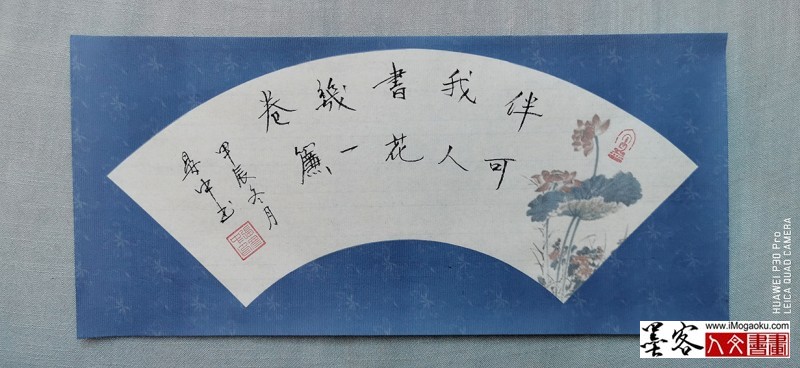 伴我書幾卷
可人花一簾
甲辰冬月
中书
HUAWEI P30 Pro
LEICA QUAD CAMERA
墨客
www.iMogaoku.com
人文書畫